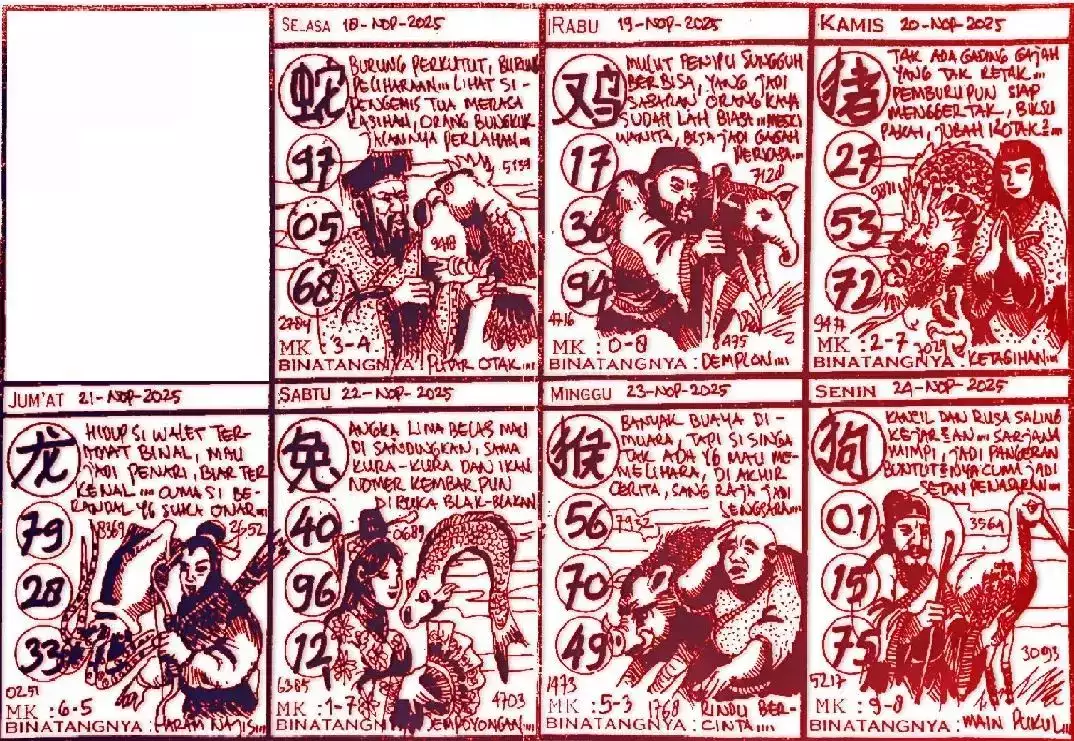 SELASA 18-NOP-2025
蛇
BURUNG PERKUTUT, BURUNG
PELIHARAAN... LIHAT SI-
PENGEMIS TUA MERASA
KASIHAN, ORANG BUNGKUK
JALANNYA PERLAHAN...
97
5139
05
9418
68
2784
MK : 3-4
BINATANGNYA : PUTAR OTAK...
RABU 19-NOP-2025
鸡
MULUT PENIPU SUNGGUH
BERBISA, YANG JADI
SASARAN ORANG KAYA
SUDAH LAH BIASA... MESKI
WANITA, BISA JADI GAGAH
PERKASA...
17
7128
36
94
4716
8495
MK : 0-8
BINATANGNYA : DEMPLON...
KAMIS 20-NOP-2025
猪
TAK ADA GADING GAJAH
YANG TAK RETAK...
PEMBURU PUN SIAP
MENGGERTAK, BIKSU
PAKAI JUBAH KOTAK2...
27
53
72
MK : 2-7
2029
BINATANGNYA : KETAGIHAN...
JUM'AT 21-NOP-2025
龙
HIDUP SI WALET TER-
AMAT BINAL, MAU
JADI PENARI, BIAR TER
KENAL... CUMA SI BE-
RANDAL YG SUKA ONAR...
79
8369
2652
28
33
0251
MK : 6-5
BINATANGNYA : HARAM NAJIS...
SABTU 22-NOP-2025
兔
ANGKA LIMA BELAS MAU
DI SANDUNGKAN, SAMA
KURA-KURA DAN IKAN
NOMER KEMBAR PUN
DIBUKA BLAK-BLAKAN
40
0689
96
12
6385
4703
MK : 1-7
BINATANGNYA : EMPOYONGAN...
MINGGU 23-NOP-2025
猴
BANYAK BUAYA DI-
MUARA, TAPI SI SINGA
TAK ADA YG MAU ME-
MELIHARA, DI AKHIR
CERITA, SANG RAJA JADI
SENGSARA...
56
7932
70
49
1473
MK : 5-3
1768
BINATANGNYA : RINDU BER-
CINTA...
SENIN 24-NOP-2025
狗
KANCIL DAN RUSA SALING
KEJAR2AN... SARJANA
MIMPI, JADI PANGERAN
BUNTUT2NYA CUMA JADI
SETAN PENASARAN...
01
3564
15
75
3093
5217
MK : 9-8
BINATANGNYA : MAIN PUKUL...